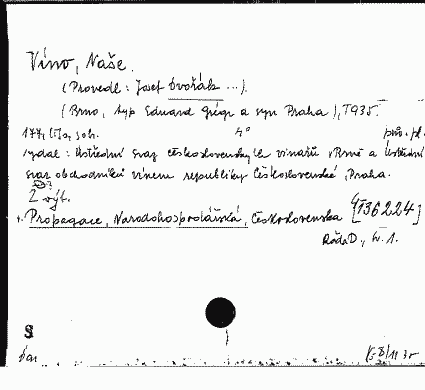 Víno, Naše.
(Provedl: Josef Dvořák ...).
(Brno, typ Eduard Grégr a syn Praha), 1935.
4° pův. pl.
vydal: Ústřední svaz československých vinařů v Brně a Ústřední
svaz obchodníků vínem republiky Československé, Praha.
2 výt.
1. Propagace, Národohospodářská, Československa [4136224]
Řáda D., w. 1.
S